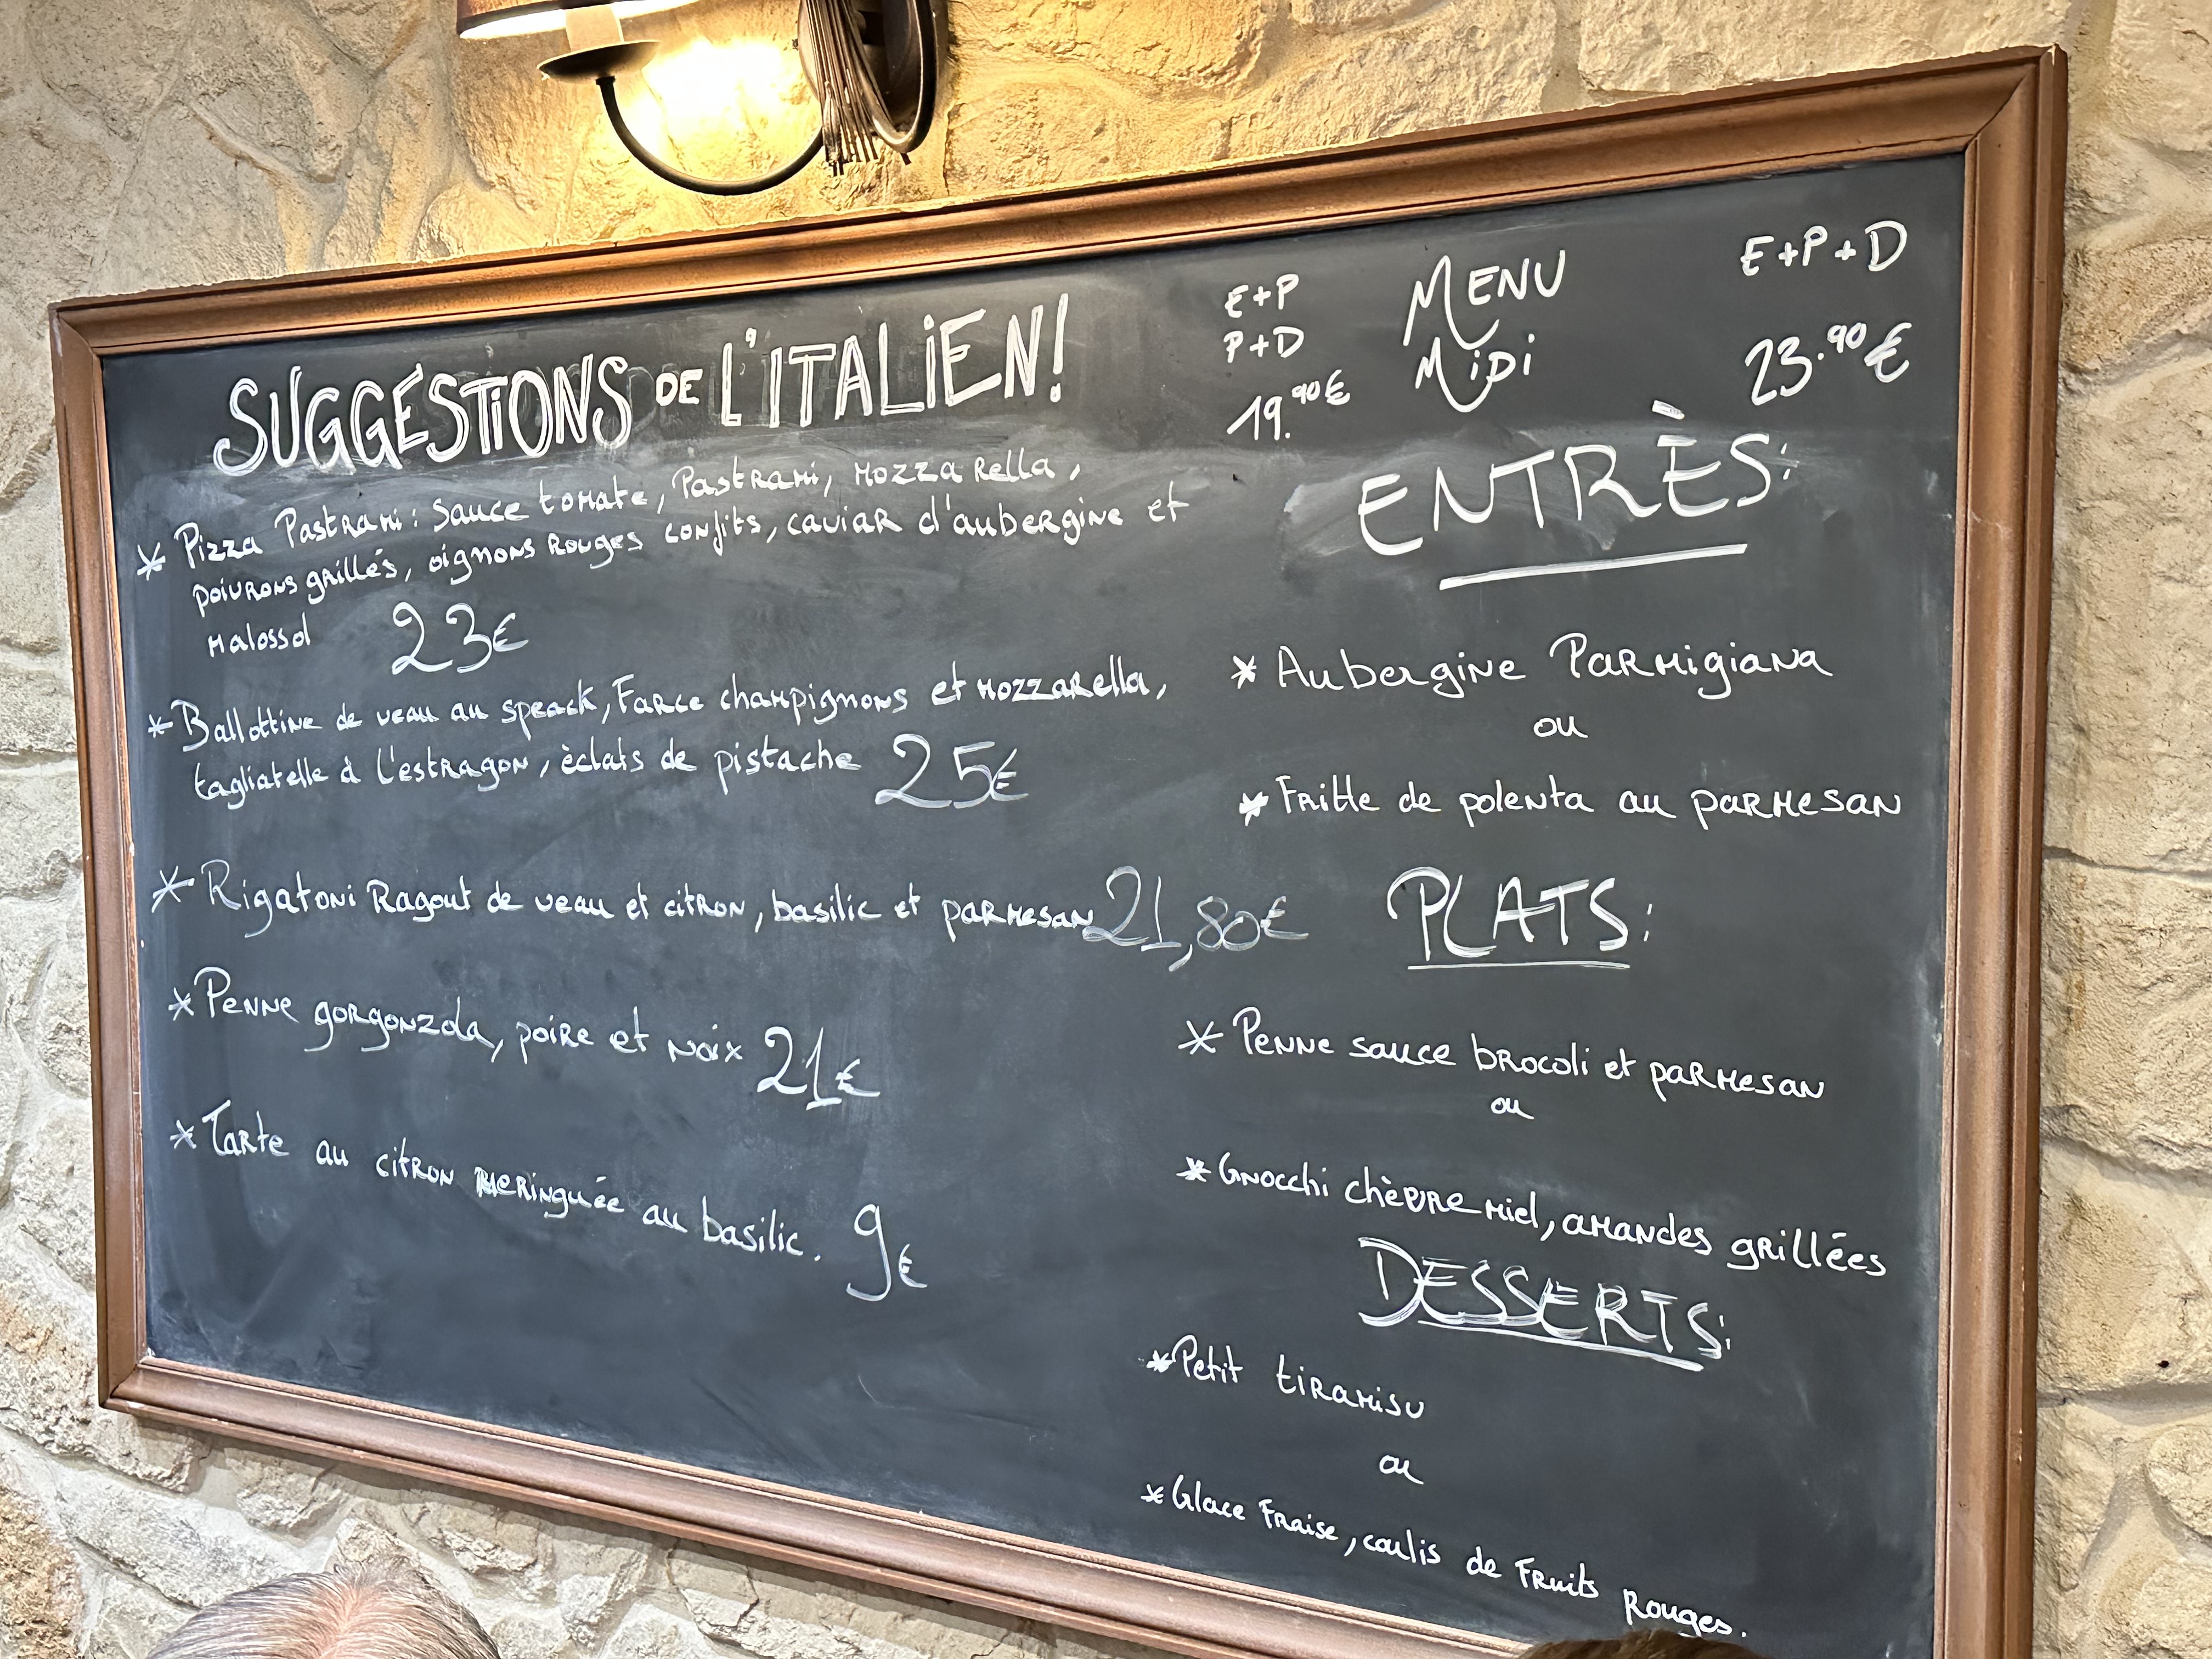 SUGGESTIONS DE L'ITALIEN!
* Pizza Pastrami : Sauce tomate, Pastrami, Mozzarella,
poivrons grillés, oignons rouges confits, caviar d'aubergine et
malossol 23€
* Ballottine de veau au speack, Farce champignons et mozzarella,
tagliatelle à l'estragon, èclats de pistache 25€
* Rigatoni Ragout de veau et citron, basilic et parmesan 21,80€
* Penne gorgonzola, poire et noix 21€
* Tarte au citron meringuée au basilic. 9€
E+P
P+D
19.90€
MENU
Midi
E+P+D
23.90€
ENTRÈS:
* Aubergine Parmigiana
ou
* Fritte de polenta au parmesan
PLATS:
* Penne sauce brocoli et parmesan
ou
* Gnocchi chèvre miel, amandes grillées
DESSERTS:
* Petit tiramisu
ou
* Glace Fraise, coulis de Fruits Rouges.